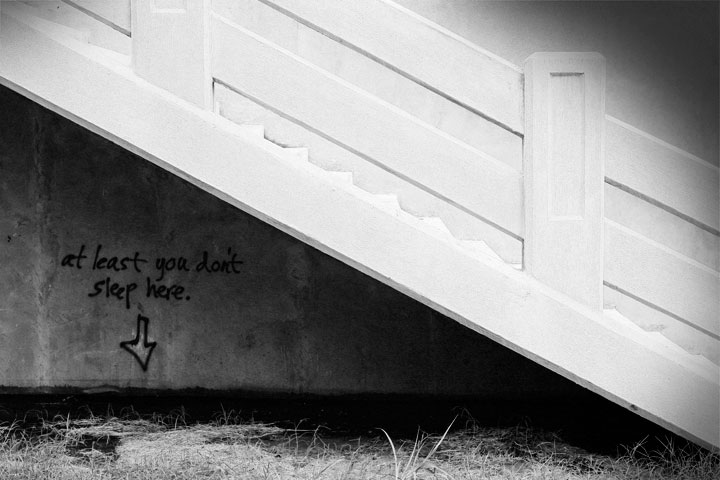 at least you don't
sleep here.